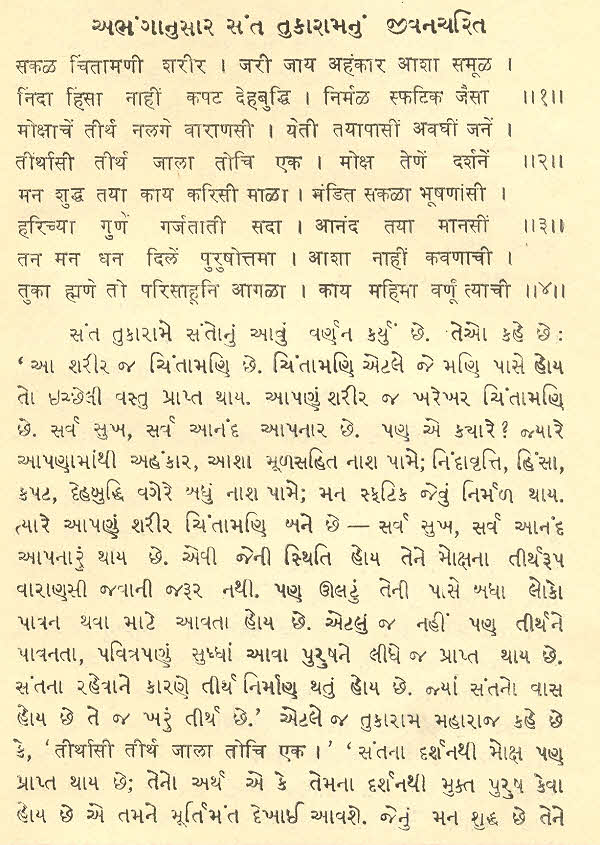 અભંગાનુસાર સંત તુકારામનું જીવનચરિત
सकळ चिंतामणी शरीर । जरी जाय अहंकार आशा समूळ ।
निंदा हिंसा नाहीं कपट देहबुद्धि । निर्मळ स्फटिक जैसा ॥१॥
मोक्षाचें तीर्थ नलगे वाराणसी । येती तयापासीं अवघीं जनें ।
तीर्थासी तीर्थ जाला तोचि एक । मोक्ष तेणें दर्शनें ॥२॥
मन शुद्ध तया काय करिसी माळा । मंडित सकळा भूषणांसी ।
हरिच्या गुणें गर्जताती सदा । आनंद तया मानसीं ॥३॥
तन मन धन दिलें पुरुषोत्तमा । आशा नाहीं कवणाची ।
तुका ह्मणे तो परिसाहूनि आगळा । काय महिमा वर्णूं त्याची ॥४॥
સંત તુકારામે સંતોનું આવું વર્ણન કર્યું છે. તેઓ કહે છે :
‘ આ શરીર જ ચિંતામણિ છે. ચિંતામણિ એટલે જે મણિ પાસે હોય
તો ઇચ્છેલી વસ્તુ પ્રાપ્ત થાય. આપણું શરીર જ ખરેખર ચિંતામણિ
છે. સર્વ સુખ, સર્વ આનંદ આપનાર છે. પણ એ ક્યારે? જ્યારે
આપણામાંથી અહંકાર, આશા મૂળસહિત નાશ પામે; નિંદાવૃત્તિ, હિંસા,
કપટ, દેહબુદ્ધિ વગેરે બધું નાશ પામે; મન સ્ફટિક જેવું નિર્મળ થાય.
ત્યારે આપણું શરીર ચિંતામણિ બને છે — સર્વ સુખ, સર્વ આનંદ
આપનારું થાય છે. એવી જેની સ્થિતિ હોય તેને મોક્ષના તીર્થરૂપ
વારાણસી જવાની જરૂર નથી. પણ ઊલટું તેની પાસે બધા લોકો
પાવન થવા માટે આવતા હોય છે. એટલું જ નહીં પણ તીર્થને
પાવનતા, પવિત્રપણું સુધ્ધાં આવા પુરુષને લીધે જ પ્રાપ્ત થાય છે.
સંતના રહેવાને કારણે તીર્થ નિર્માણ થતું હોય છે. જ્યાં સંતનો વાસ
હોય છે તે જ ખરું તીર્થ છે.’ એટલે જ તુકારામ મહારાજ કહે છે
કે, ‘તીર્થાસી તીર્થ જાલા તોચિ એક ।’ ‘સંતના દર્શનથી મોક્ષ પણ
પ્રાપ્ત થાય છે; તેનો અર્થ એ કે તેમના દર્શનથી મુક્ત પુરુષ કેવા
હોય છે એ તમને મૂર્તિમંત દેખાઈ આવશે. જેનું મન શુદ્ધ છે તેને